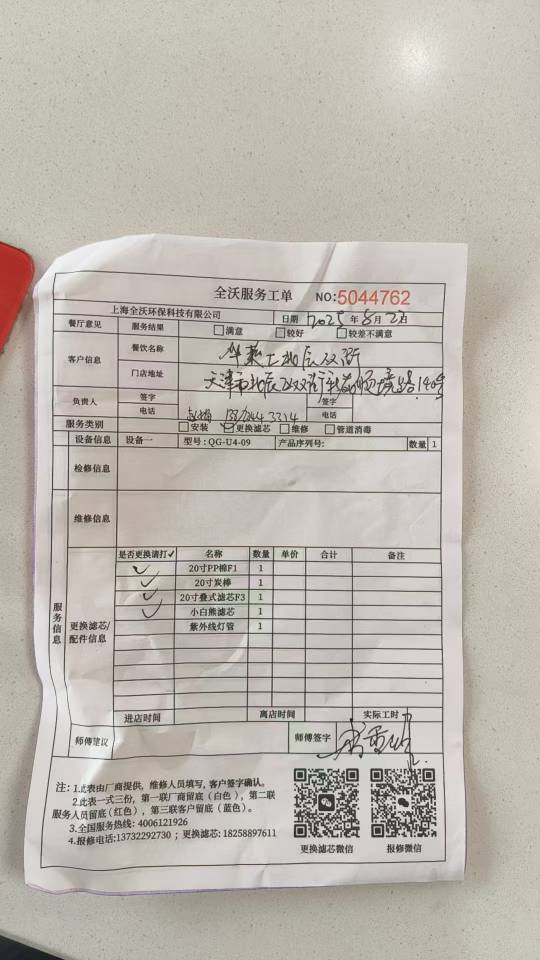 全沃服务工单 NO:5044762
上海全沃环保科技有限公司 日期 2025年8月23日
餐厅意见 服务结果 □满意 □较好 □较差不满意
客户信息 餐饮名称 华莱士北辰双街
门店地址 天津市北辰区双街镇 顺境路140号
负责人 签字 签字
电话 电话
服务类别 □安装 ☑更换滤芯 □维修 □管道消毒
设备信息 设备一 型号:QG-U4-09 产品序列号: 数量 1
检修信息
维修信息
服务信息
更换滤芯/配件信息
是否更换请打✓ 名称 数量 单价 合计 备注
✓ 20寸PP棉F1 1
✓ 20寸炭棒 1
✓ 20寸叠式滤芯F3 1
✓ 小白熊滤芯 1
紫外线灯管 1
进店时间 离店时间 实际工时
师傅建议 师傅签字
注:1.此表由厂商提供，维修人员填写，客户签字确认。
2.此表一式三份，第一联厂商留底（白色），第二联
服务人员留底(红色），第三联客户留底（蓝色）。
3.全国服务热线: 4006121926
4.报修电话:13732292730；更换滤芯: 18258897611
更换滤芯微信 报修微信